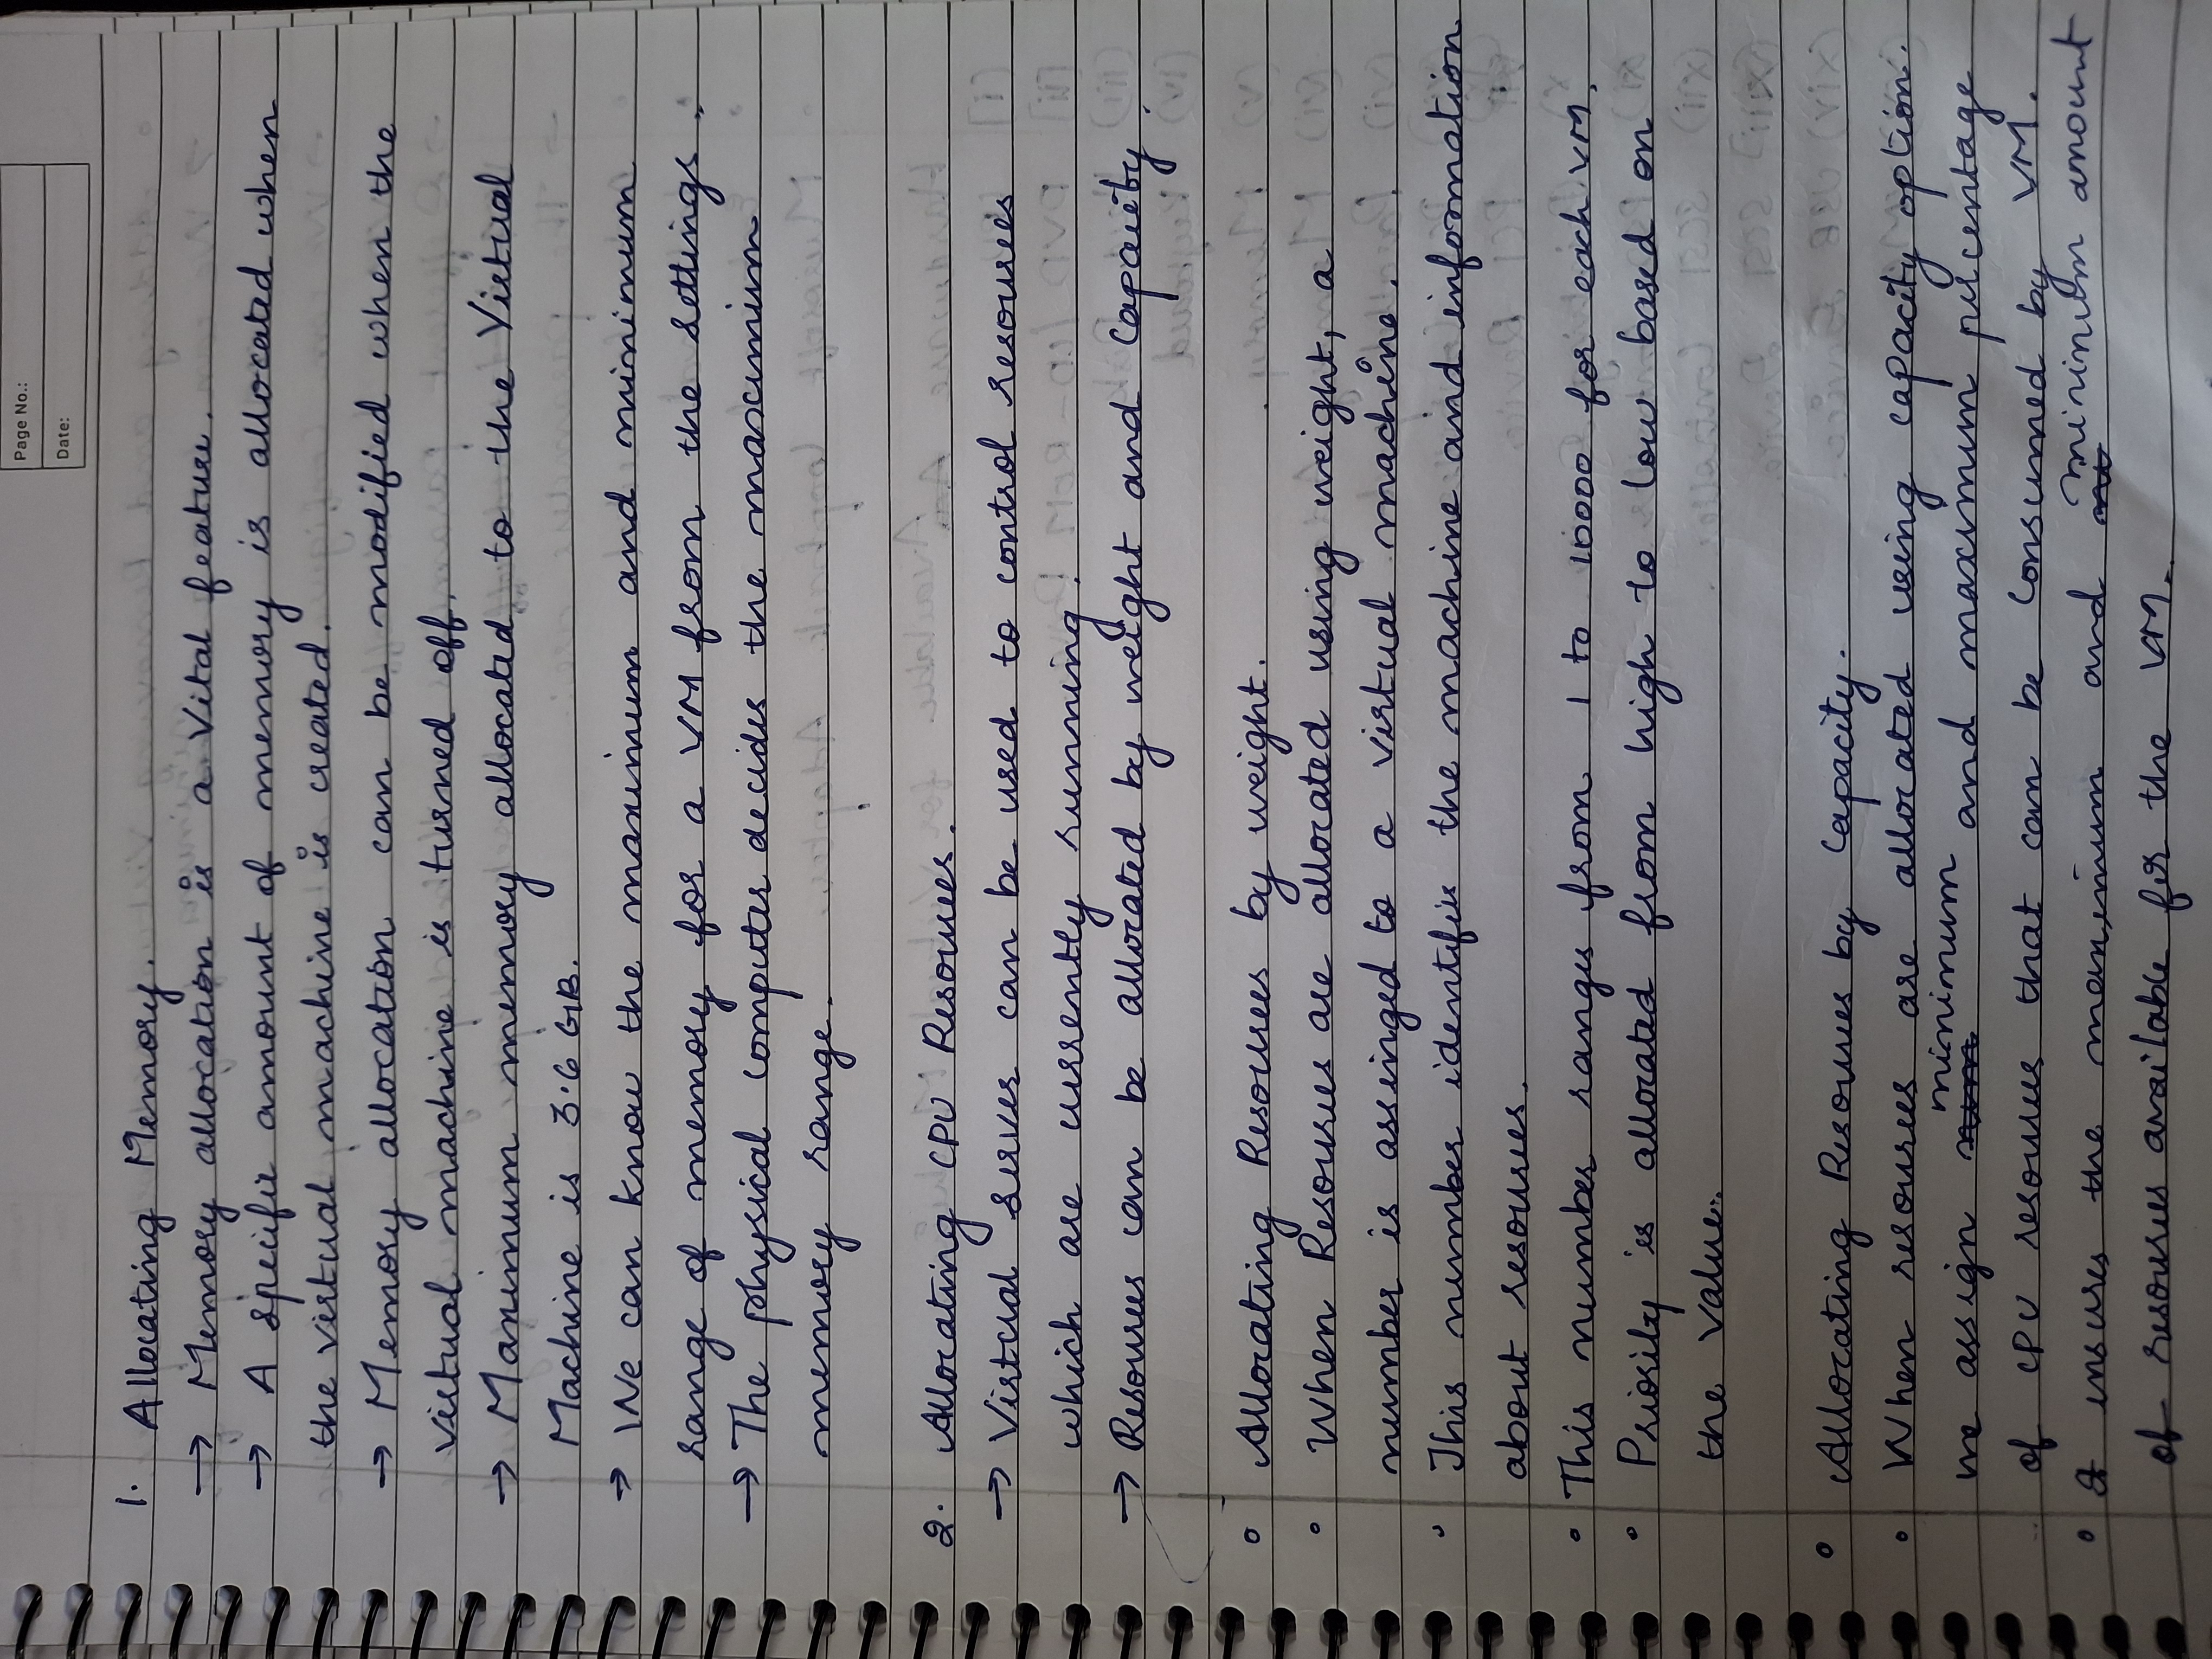 Page No.:
Date:
1. Allocating Memory.
→ Memory allocation is a Vital feature.
→ A specific amount of memory is allocated when
the virtual machine is created.
→ Memory allocation can be modified when the
virtual machine is turned off.
→ Maximum memory allocated to the Virtual
Machine is 3.6 GB.
→ We can know the maximum and minimum
range of memory for a VM from the settings.
→ The physical computer decides the maximum
memory range.
2. Allocating CPU Resources.
→ Virtual server can be used to control resources
which are currently running.
→ Resources can be allocated by weight and Capacity.
• Allocating Resources by weight.
• When Resources are allocated using weight, a
number is assinged to a virtual machine.
• This number identifies the machine and information
about resources.
• This number ranges from 1 to 10000 for each VM.
• Priority is allocated from high to low based on
the value.
• Allocating Resources by Capacity.
• When resources are allocated using capacity option.
we assign minimum and maximum percentage
of CPU resources that can be consumed by VM.
• It insures the maximum and minimum amount
of resources available for the VM.